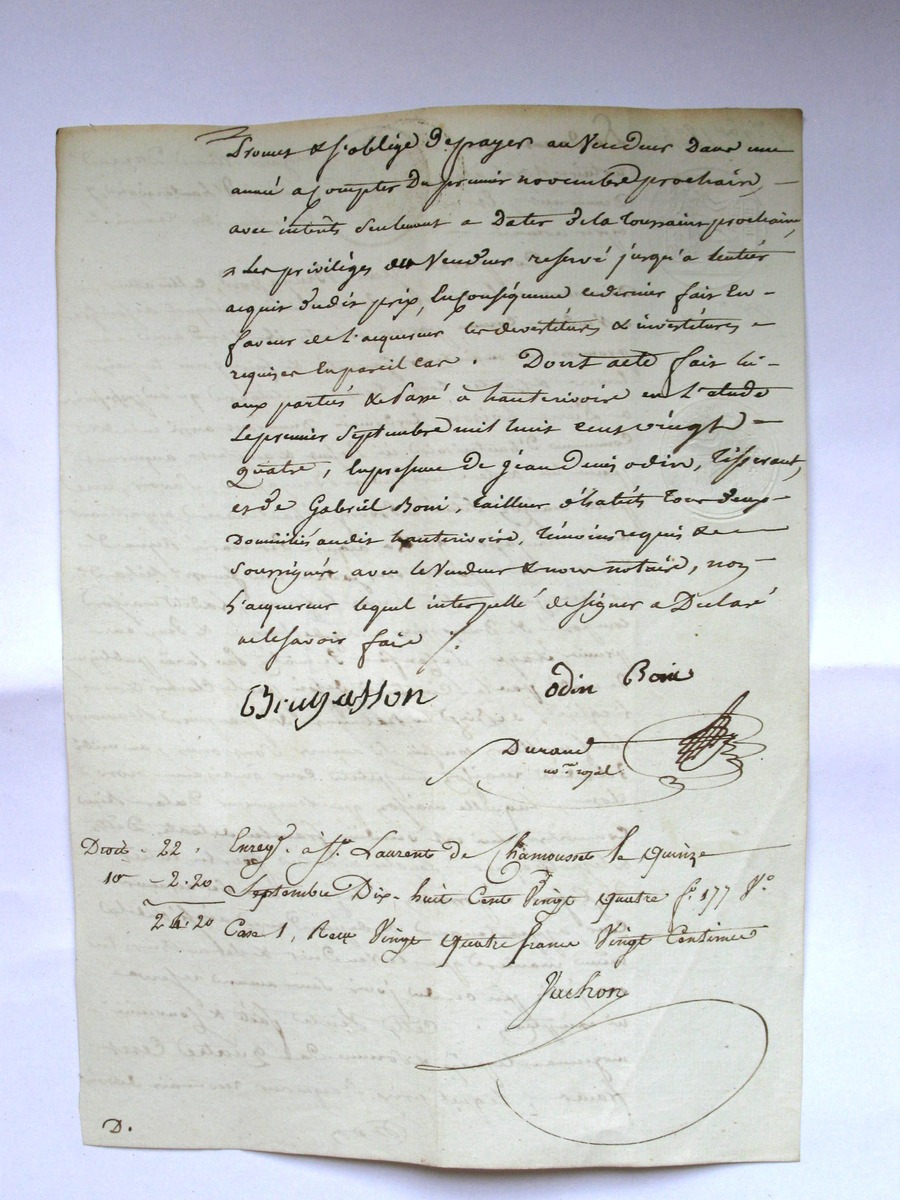 promet & s'oblige de payer au vendeur dans une
année a compter du premier novembre prochain,
avec intérêts seulement a dater de la toussaint prochaine,
& les privilèges du vendeur reservé jusqu'a l'entier
acquit dudit prix, En conséquence ce dernier fait En
faveur de l'acquereur les devestitures & investitures
requises En pareil cas. Dont acte fait lu
aux parties & passé à hauterivoire en l'etude
Le premier Septembre mil huit cent vingt
Quatre, En presence de jean denis odin, tisserant,
et de Gabriel Boni, tailleur d'habits tous deux
Domiciliés audit hauterivoire, témoins requis &
soussignés avec le vendeur & nous notaire, non
L'acquereur lequel interpellé de signer a Declaré
ne le savoir faire ./.
Bruyasson
odin Boni
Durand
not.re royal
Droit - 22.
10e - 2.20
24.20
Enreg.é à St. Laurent de Chamousset le quinze
Septembre Dix-huit Cent Vingt quatre f.o 177 V.o
Case 1, Reçu Vingt quatre francs Vingt Centimes
Jachon
D.